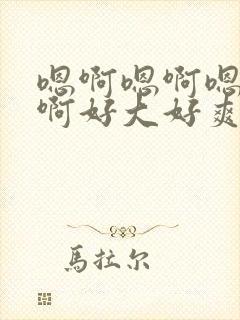 嗯啊嗯啊嗯
啊好大好爽
馬拉尔